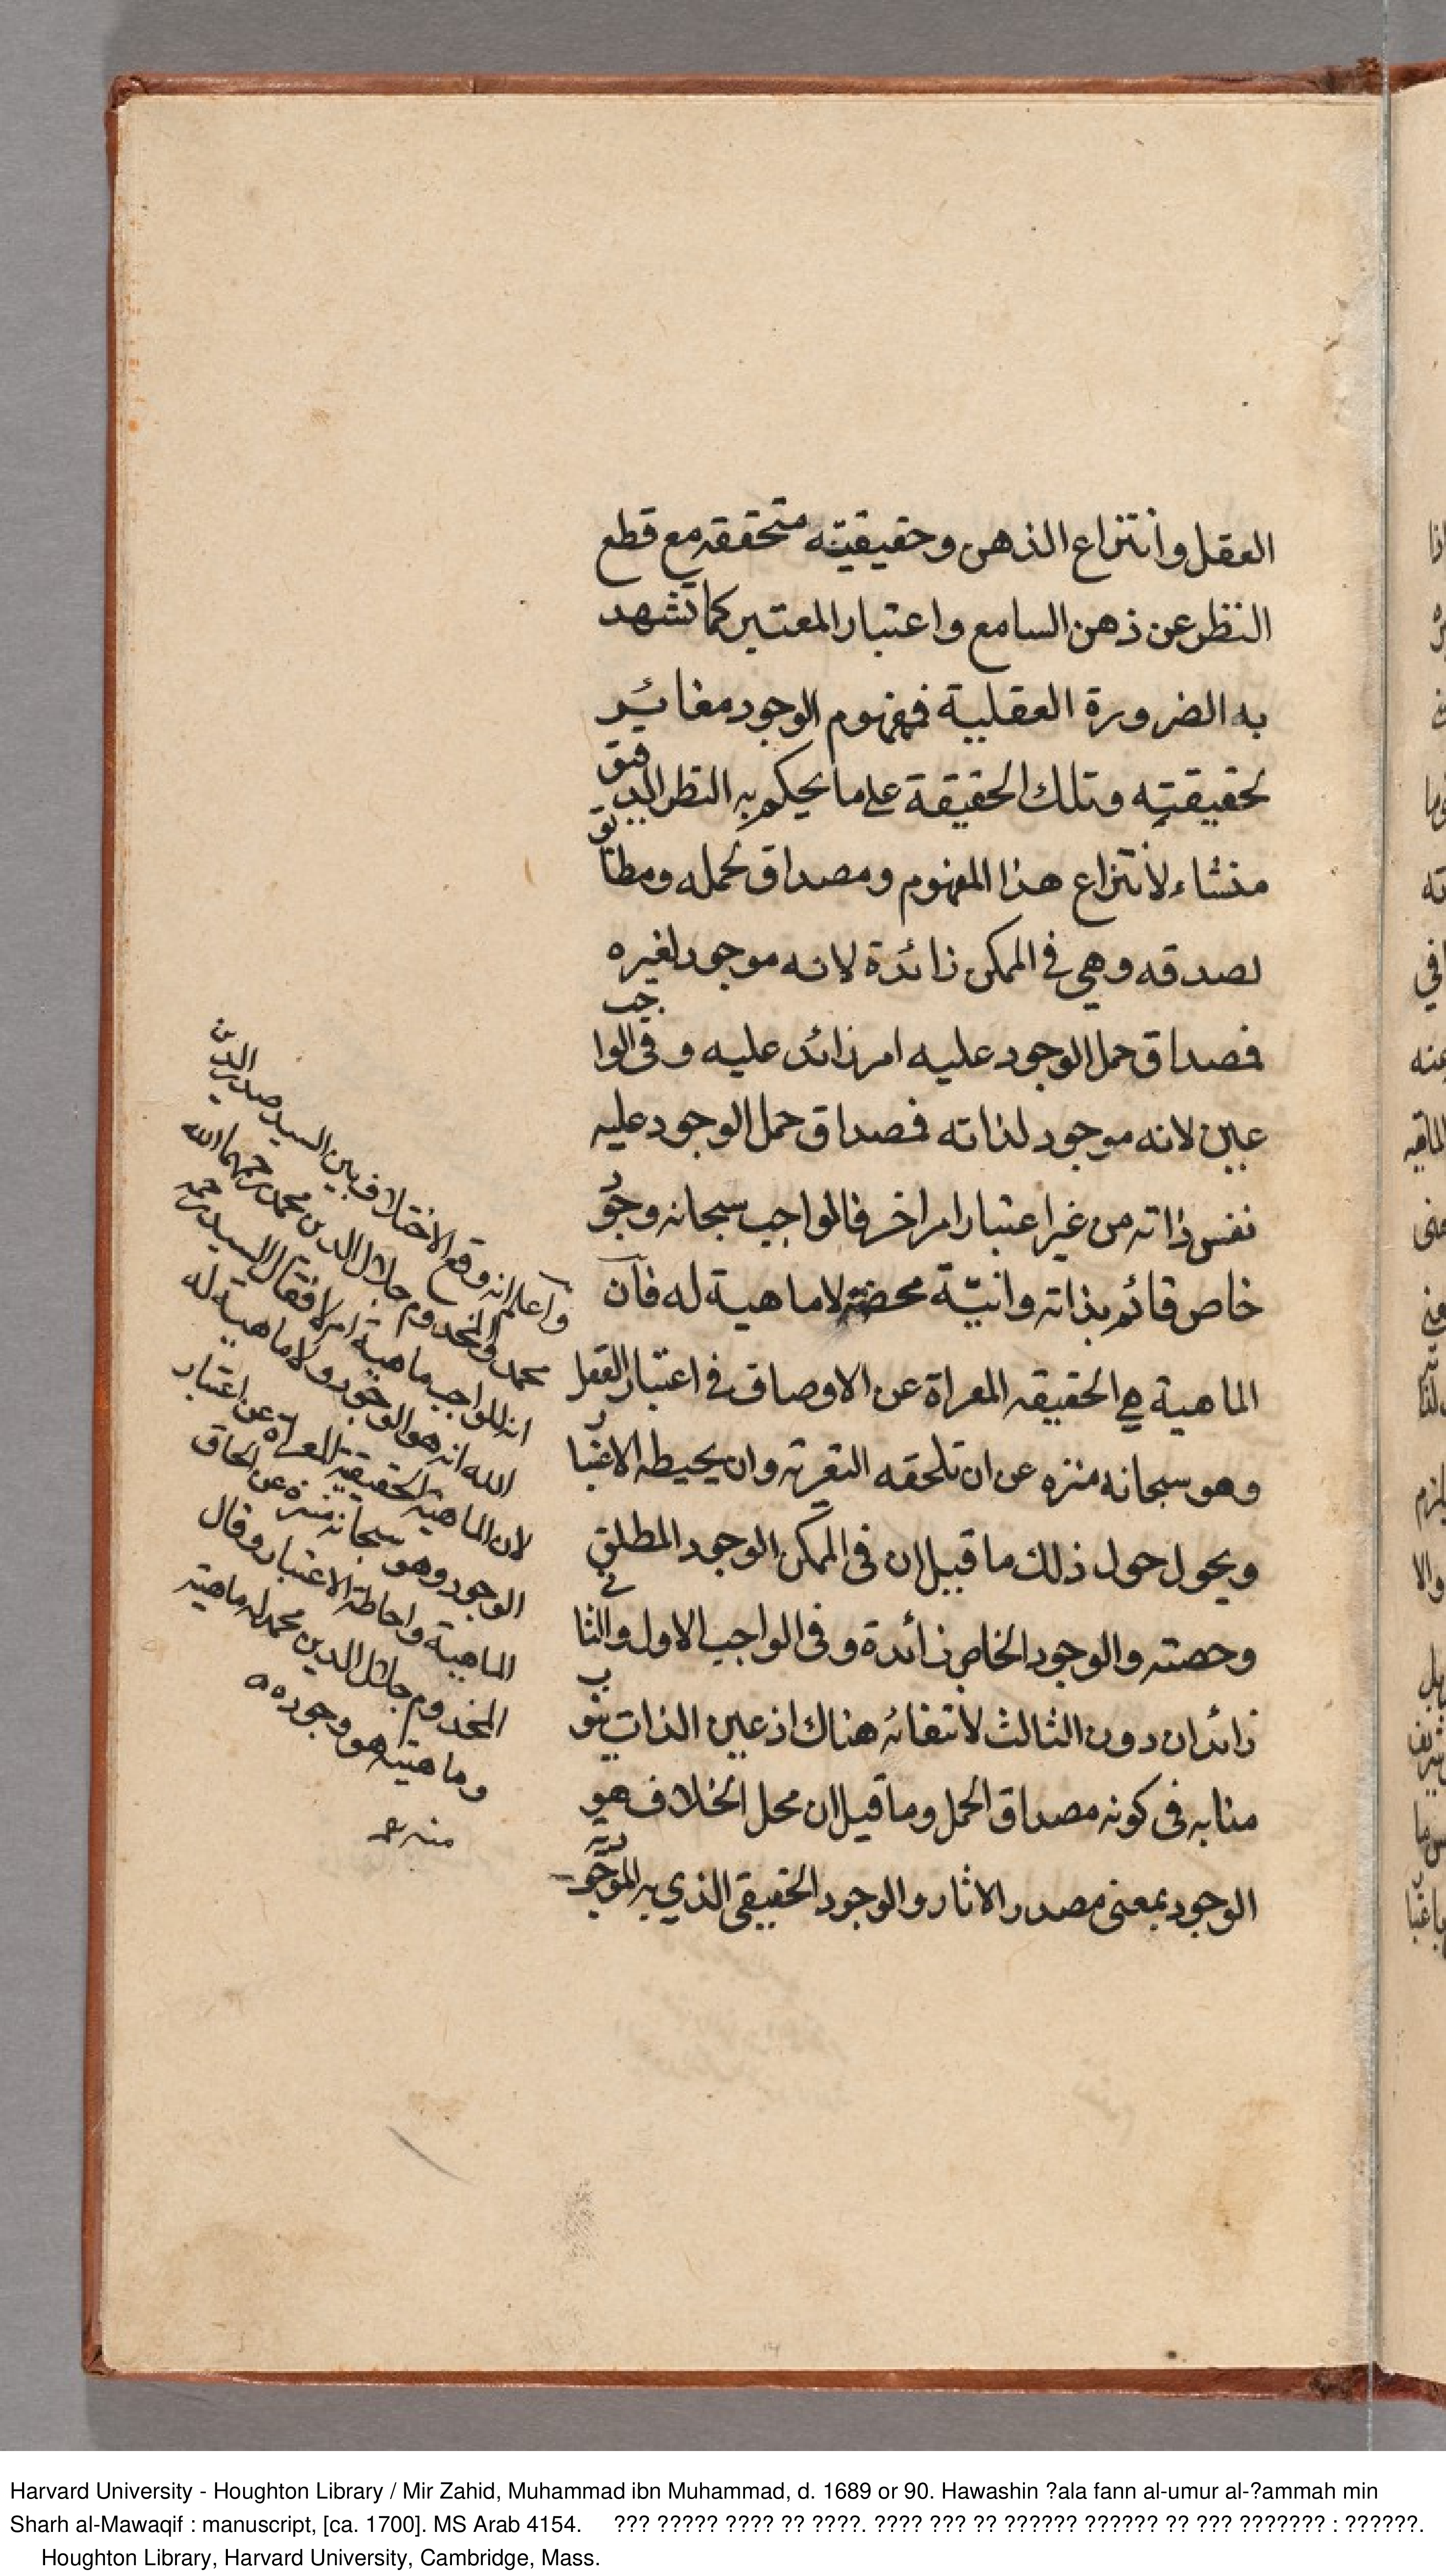 العقل وانتزاع الذهن وحقيقيته متحققه مع قطع
النظر عن ذهن السامع واعتبار المعتبر كما تشهد
به الضرورة العقلية فمفهوم الوجود مغائير
لحقيقته وتلك الحقيقة على ما يحكم به النظر الدقيق
منشاء لانتزاع هذا المفهوم ومصداق لحمله ومطابق
لصدقه وهي في الممكن زائدة لانه موجود لغيره
فمصداق حمل الوجود عليه امر زائد عليه وفى الواجب
عين لانه موجود لذاته فمصداق حمل الوجود عليه
نفس ذاته من غير اعتبار امر اخر فالواجب سبحانه وجود
خاص قائم بذاته وانيّة محضة لا ماهية له فان
الماهية هي الحقيقه المعراة عن الاوصاف في اعتبار العقل
وهو سبحانه منزه عن ان تلحقه التعرية وان يحيطه الاعتبار
ويحول حول ذلك ما قيل ان فى الممكن الوجود المطلق
وحصته والوجود الخاص زائدة وفى الواجب الاول والثاني
زائدان دون الثالث لانتفائه هناك اذ عين الذات ينوب
منابه فى كونه مصداق الحمل وما قيل ان محل الخلاف هو
الوجود بمعنى مصدر الاثار والوجود الحقيقى الذي به الموجودية
واعلم انه وقع الاختلاف بين السيد صدر الدين
محمد والمخدوم جلال الدين محمد رحمهما الله
ان للواجب ماهية ام لا فقال السيد رحمه
الله انه هو الوجود ولا ماهية له
لان الماهية الحقيقية المعراة عن اعتبار
الوجود وهو سبحانه منزه عن الحاق
الماهية واحاطة الاعتبار وقال
المخدوم جلال الدين محمد له ماهية
وماهيته هو وجوده
منه
Harvard University - Houghton Library / Mir Zahid, Muhammad ibn Muhammad, d. 1689 or 90. Hawashin ?ala fann al-umur al-?ammah min
Sharh al-Mawaqif : manuscript, [ca. 1700]. MS Arab 4154. ??? ????? ???? ?? ????. ???? ??? ?? ?????? ?????? ?? ??? ??????? : ??????.
Houghton Library, Harvard University, Cambridge, Mass.